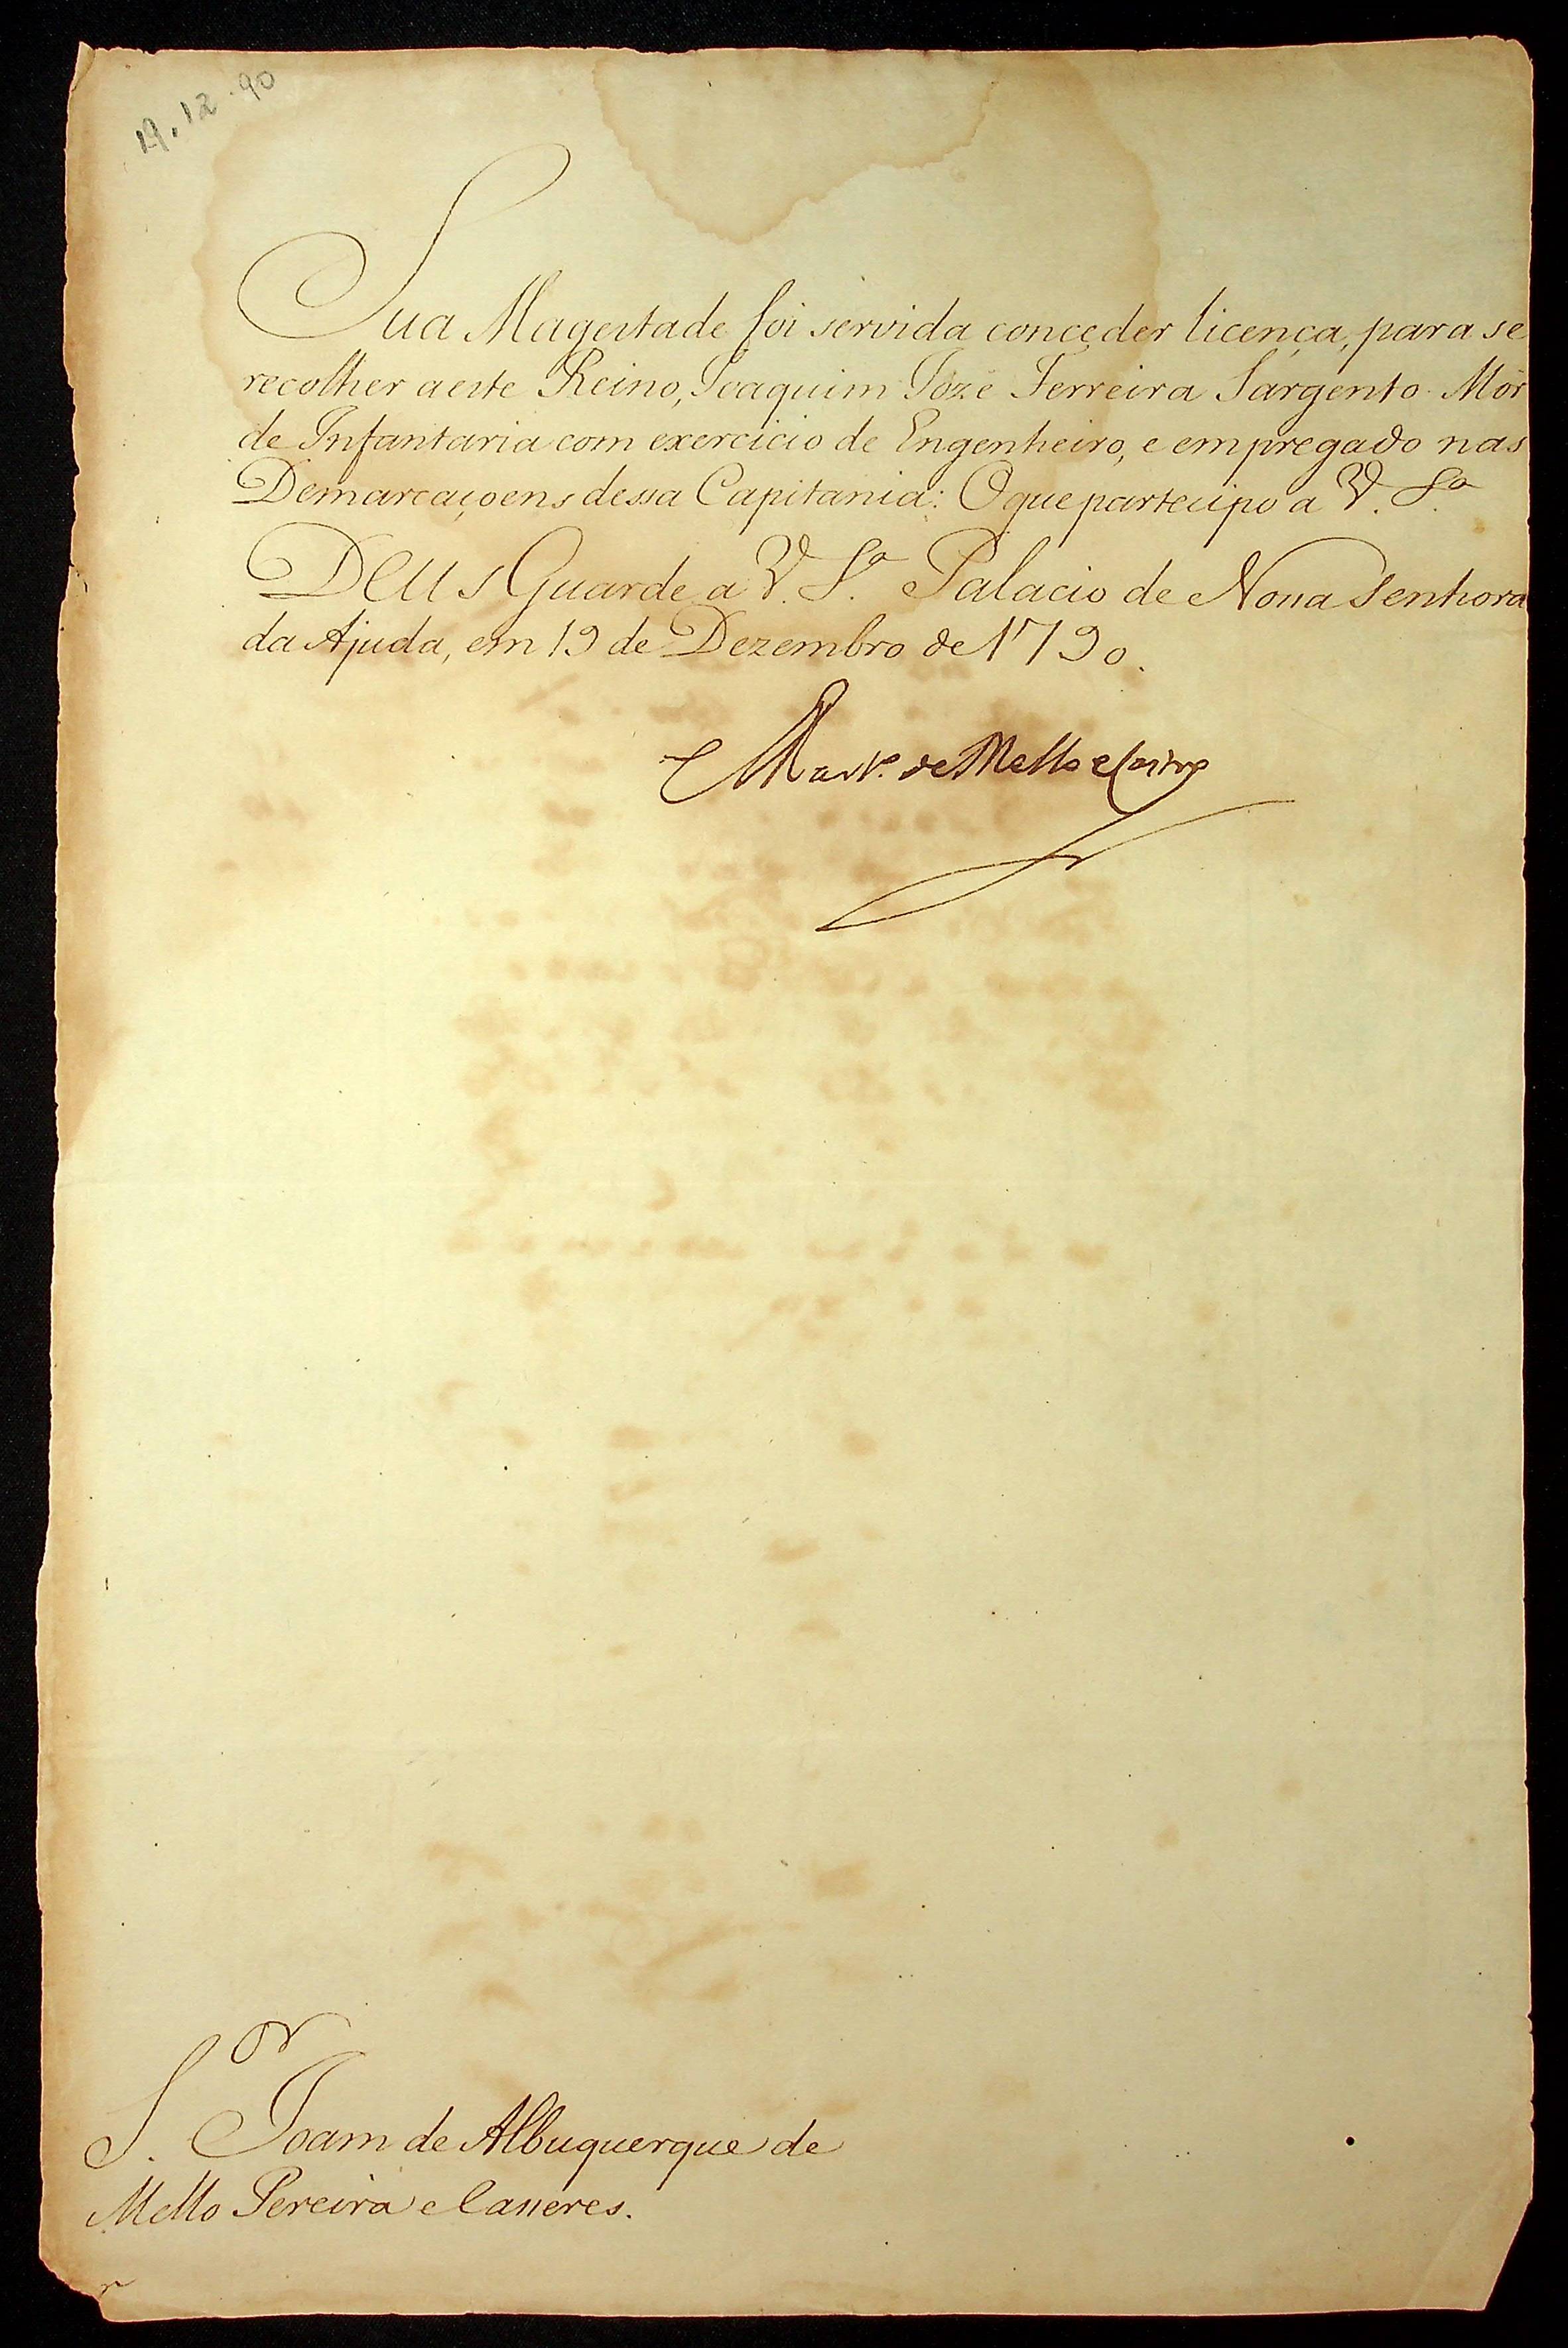 19.12.90
Sua Magestade foi servida conceder licença, para se
recolher a este Reino, Joaquim Jozé Ferreira Sargento Mór
de Infantaria com exercicio de Engenheiro, e empregado nas
Demarcaçoens dessa Capitania: O que partecipo a V. S.ª
Deus Guarde a V. S.ª Palacio de Nossa Senhora
da Ajuda, em 19 de Dezembro de 1790.
Mart.º de Mello e Castro
S.or Joam de Albuquerque de
Mello Pereira e Casseres.